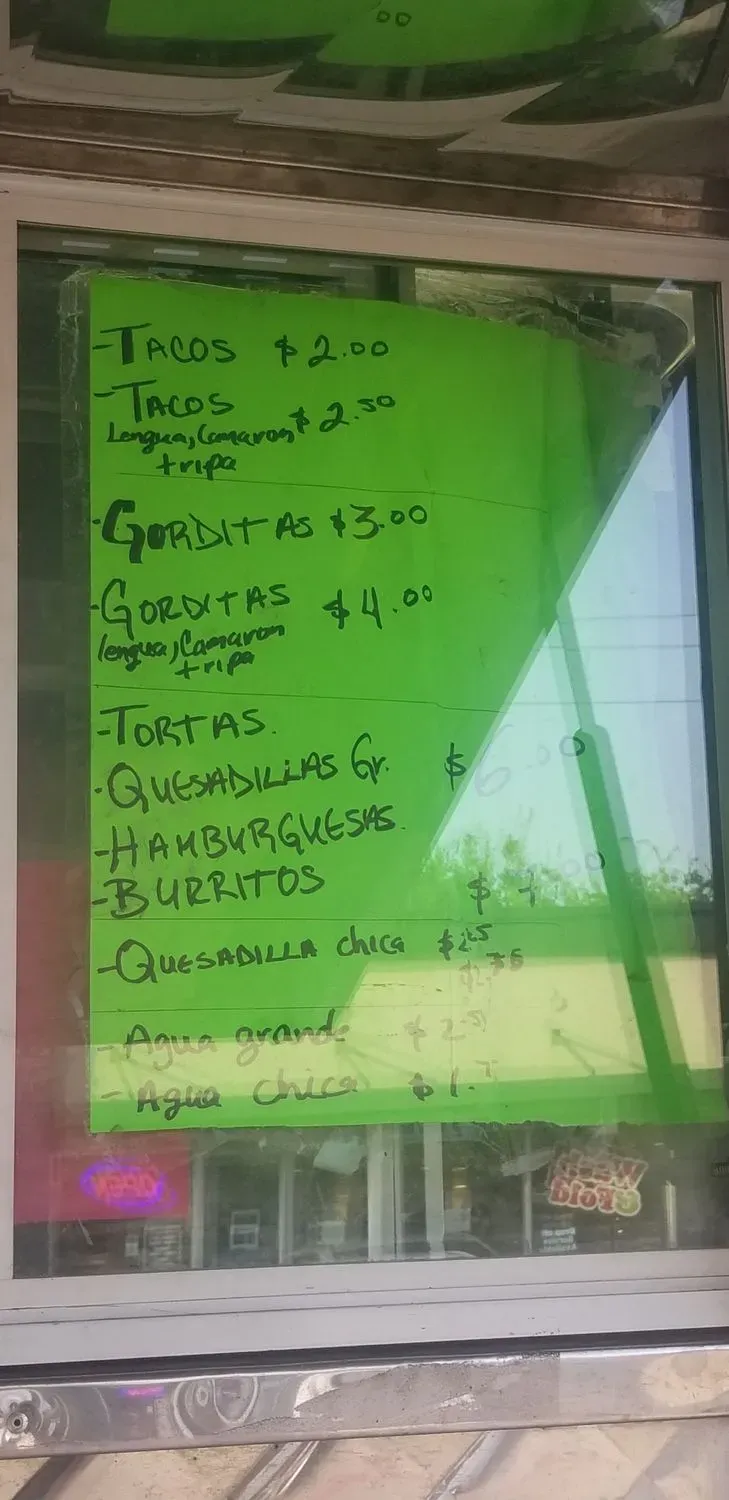 -TACOS $2.00
-TACOS $2.50
Lengua, Camaron
tripa
-GORDITAS $3.00
-GORDITAS $4.00
lengua, Camaron
tripa
-TORTAS.
-QUESADILLAS Gr. $6.00
-HAMBURGUESAS.
-BURRITOS $
-QUESADILLA chica
-Agua grande
-Agua chica